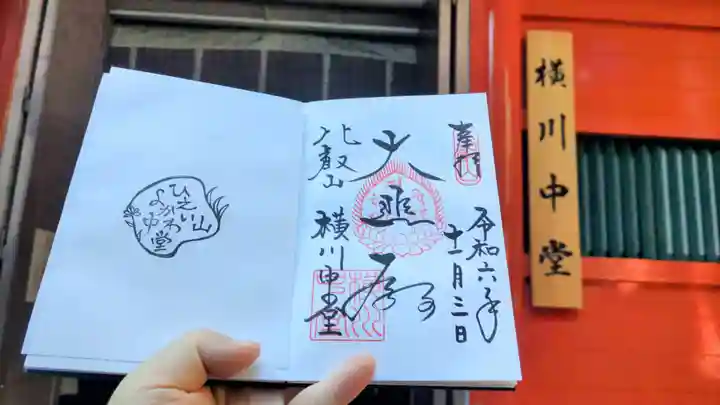 横川中堂
奉拝
令和六年
十一月三日
大
比叡山
横川中堂
ひえい山
よかわ
中堂